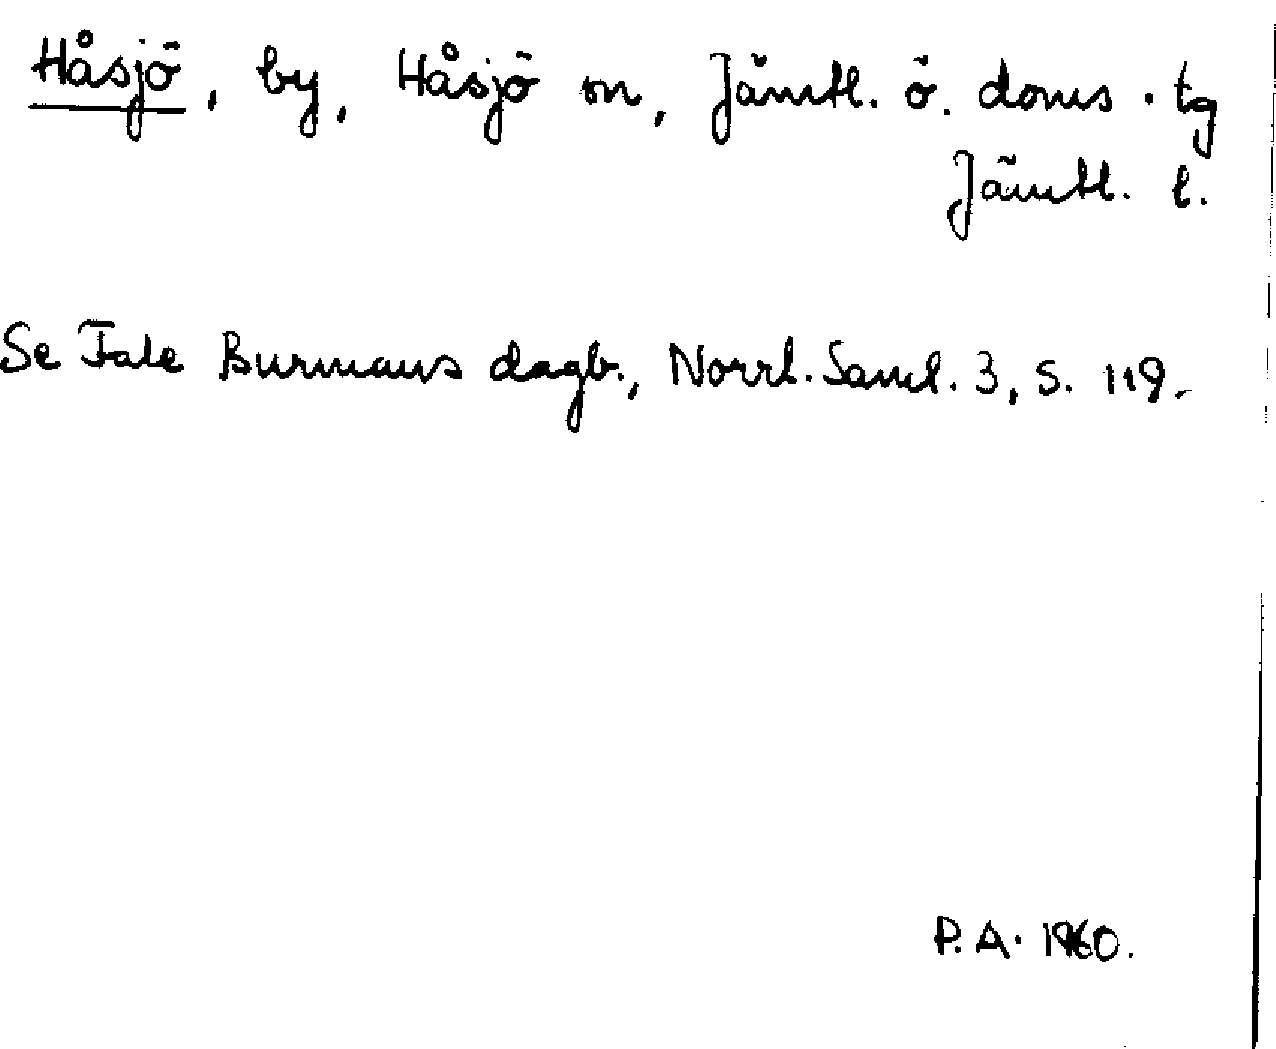 Håsjö, by, Håsjö sn, Jämtl. ö. doms. tg
Jämtl. l.
Se Fale Burmans dagb., Norrl. Saml. 3, s. 119.
P. A. 1960.